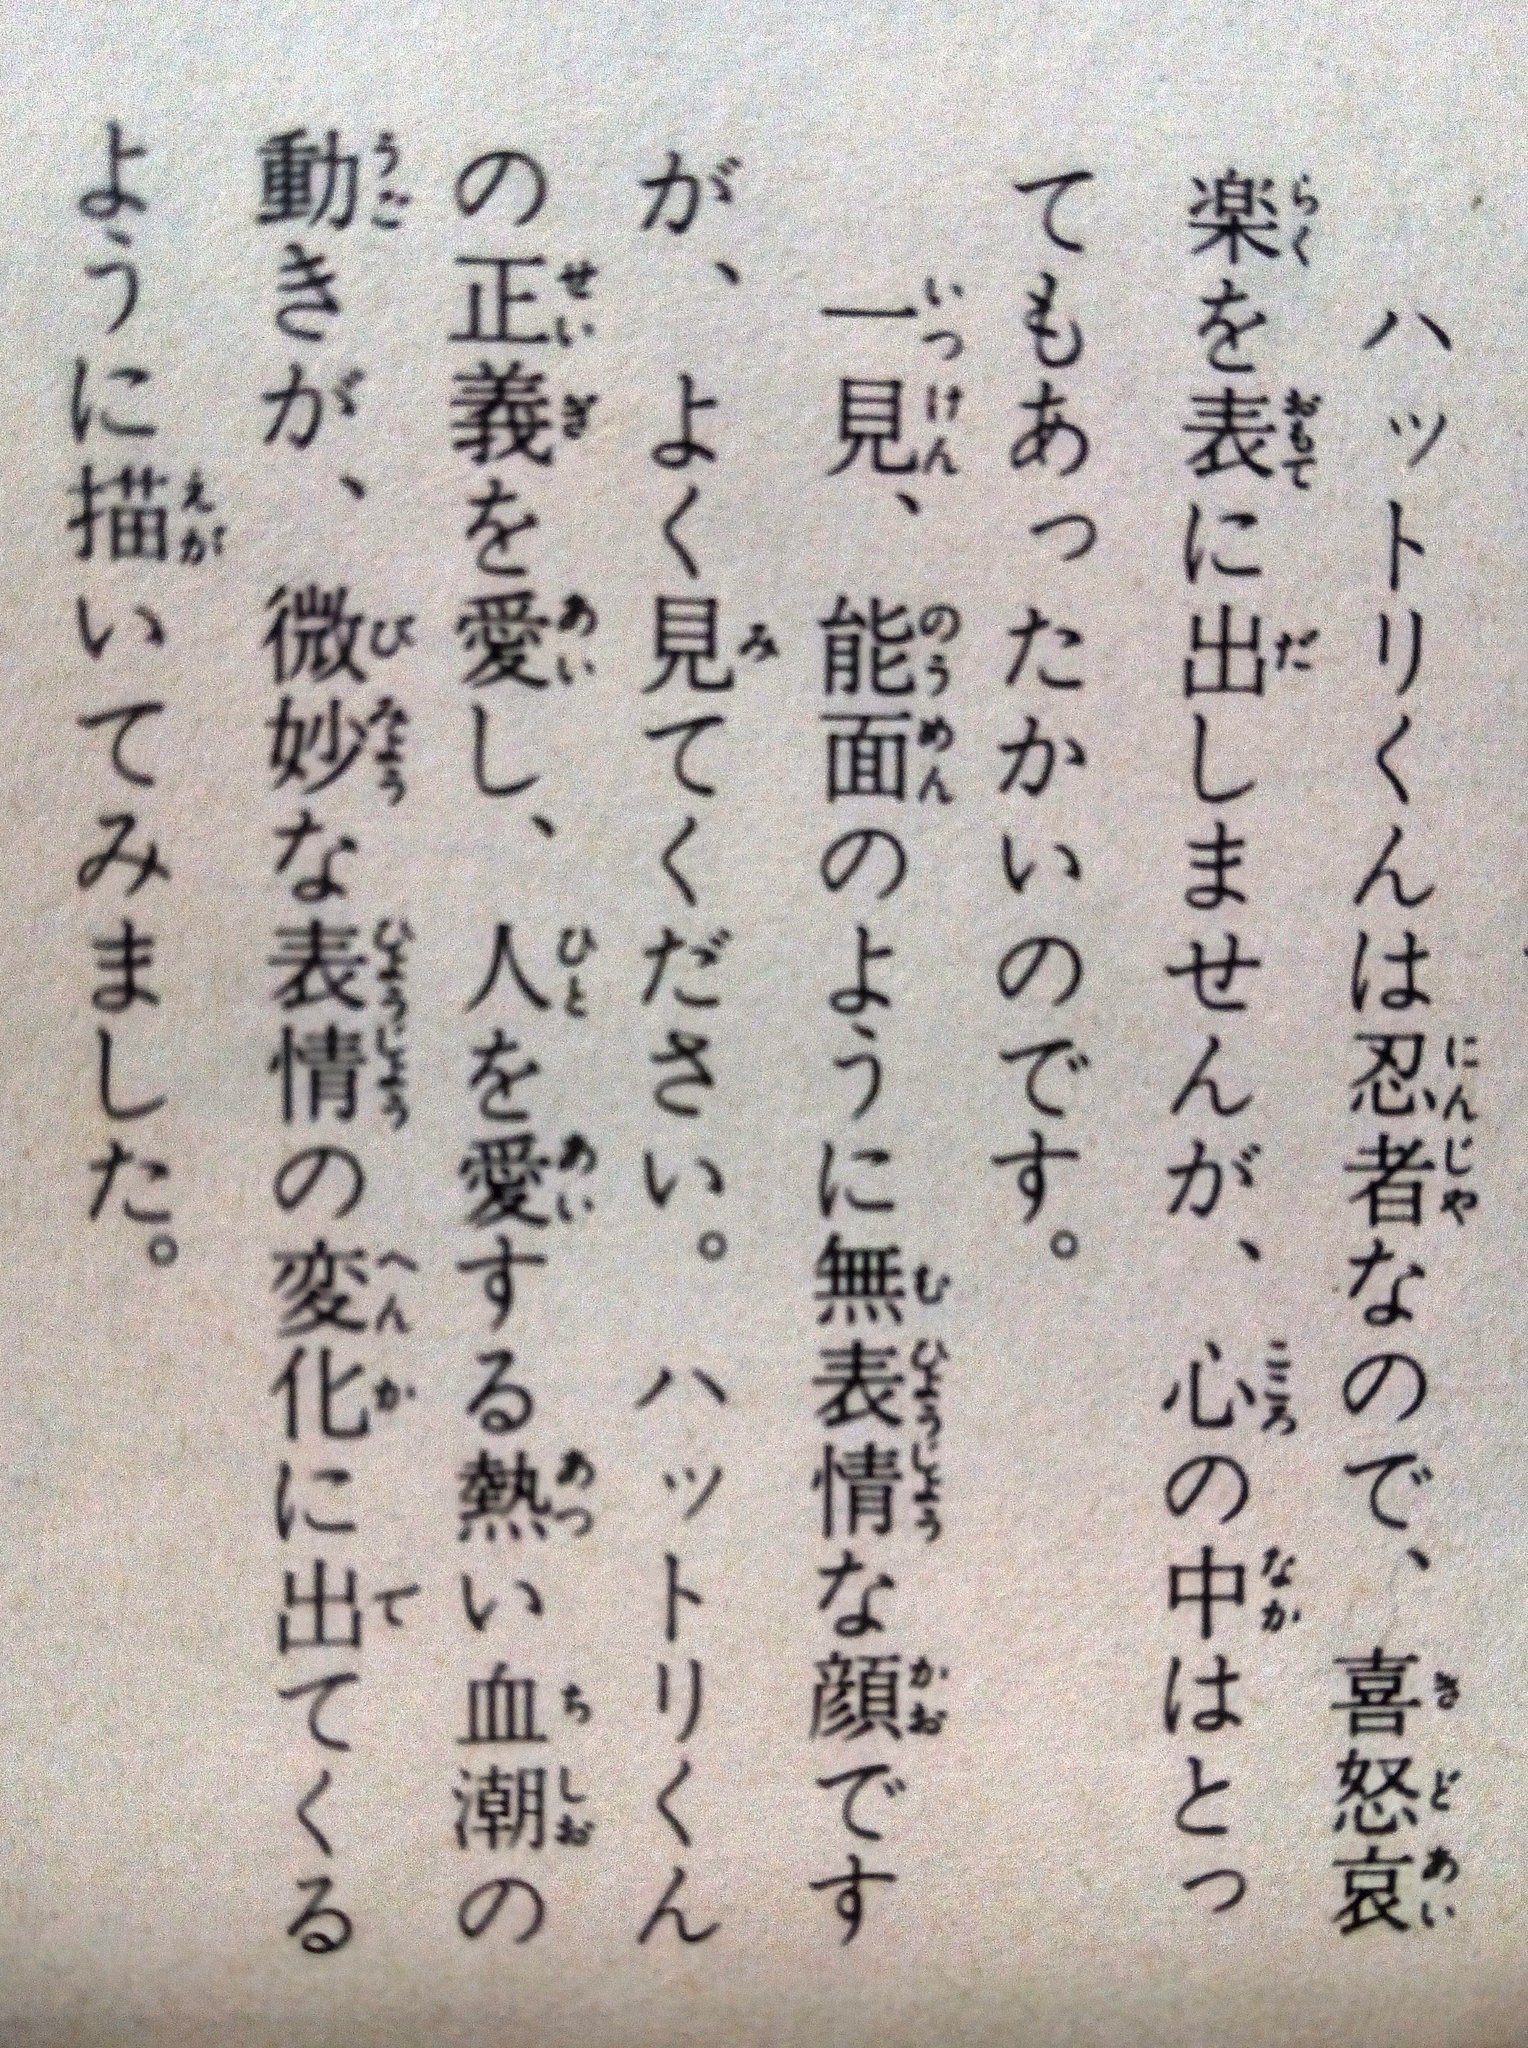 ハットリくんは忍者なので、喜怒哀
楽を表に出しませんが、心の中はとっ
てもあったかいのです。
一見、能面のように無表情な顔です
が、よく見てください。ハットリくん
の正義を愛し、人を愛する熱い血潮の
動きが、微妙な表情の変化に出てくる
ように描いてみました。